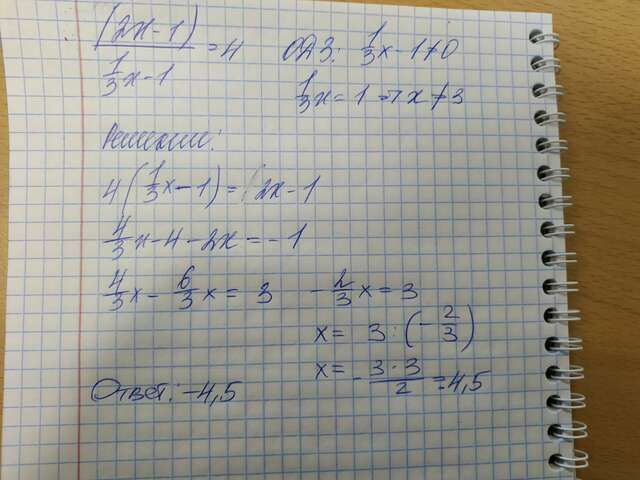 (2x-1)/(1/3x-1) = 4 ОДЗ: 1/3x-1≠0
1/3x = 1 => x ≠ 3
Решение:
4(1/3x-1) = 2x-1
4/3x-4-2x = -1
4/3x - 6/3x = 3 -2/3x = 3
x = 3 : (-2/3)
x = -3·3/2 = 4,5
Ответ: -4,5